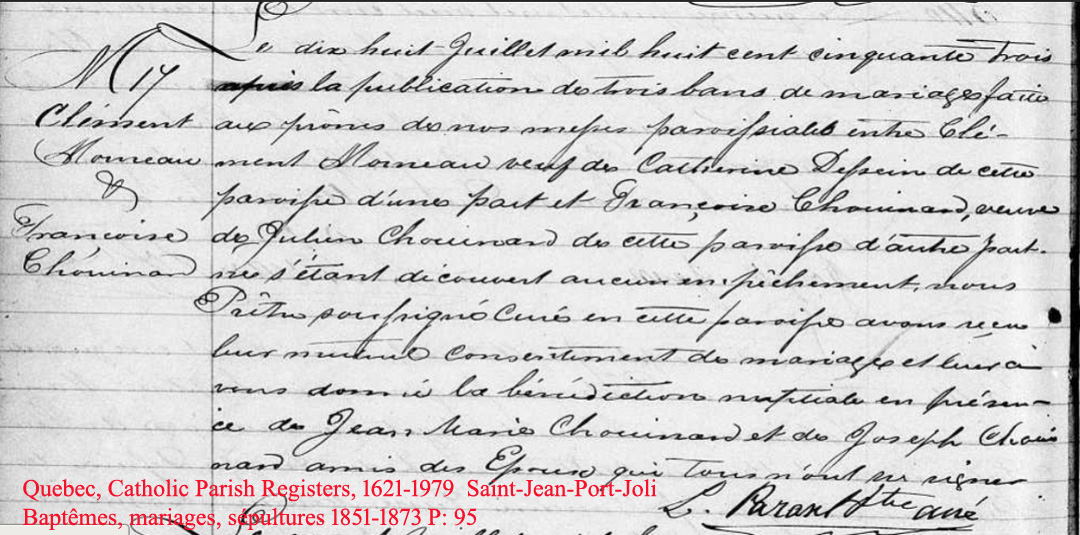 M 14
Clément
Morneau
&
Françoise
Chouinard
Le dix huit Juillet mil huit cent cinquante trois
après la publication des trois bans de mariages faite
aux prônes de nos messes paroissiales entre Clé-
ment Morneau veuf de Catherine Dessein de cette
paroisse d'une part et Françoise Chouinard, veuve
de Julien Chouinard de cette paroisse d'autre part.
ne s'étant découvert aucun empêchement, nous
Prêtre soussigné Curé en cette paroisse avons reçu
leur mutuel consentement de mariage et leur a-
vons donné la bénédiction nuptiale en présen-
ce de Jean Marie Chouinard et de Joseph Choui
nard amis des Epoux qui tous n'ont su signer
L. Parant Ptre curé
Quebec, Catholic Parish Registers, 1621-1979 Saint-Jean-Port-Joli
Baptêmes, mariages, sépultures 1851-1873 P: 95